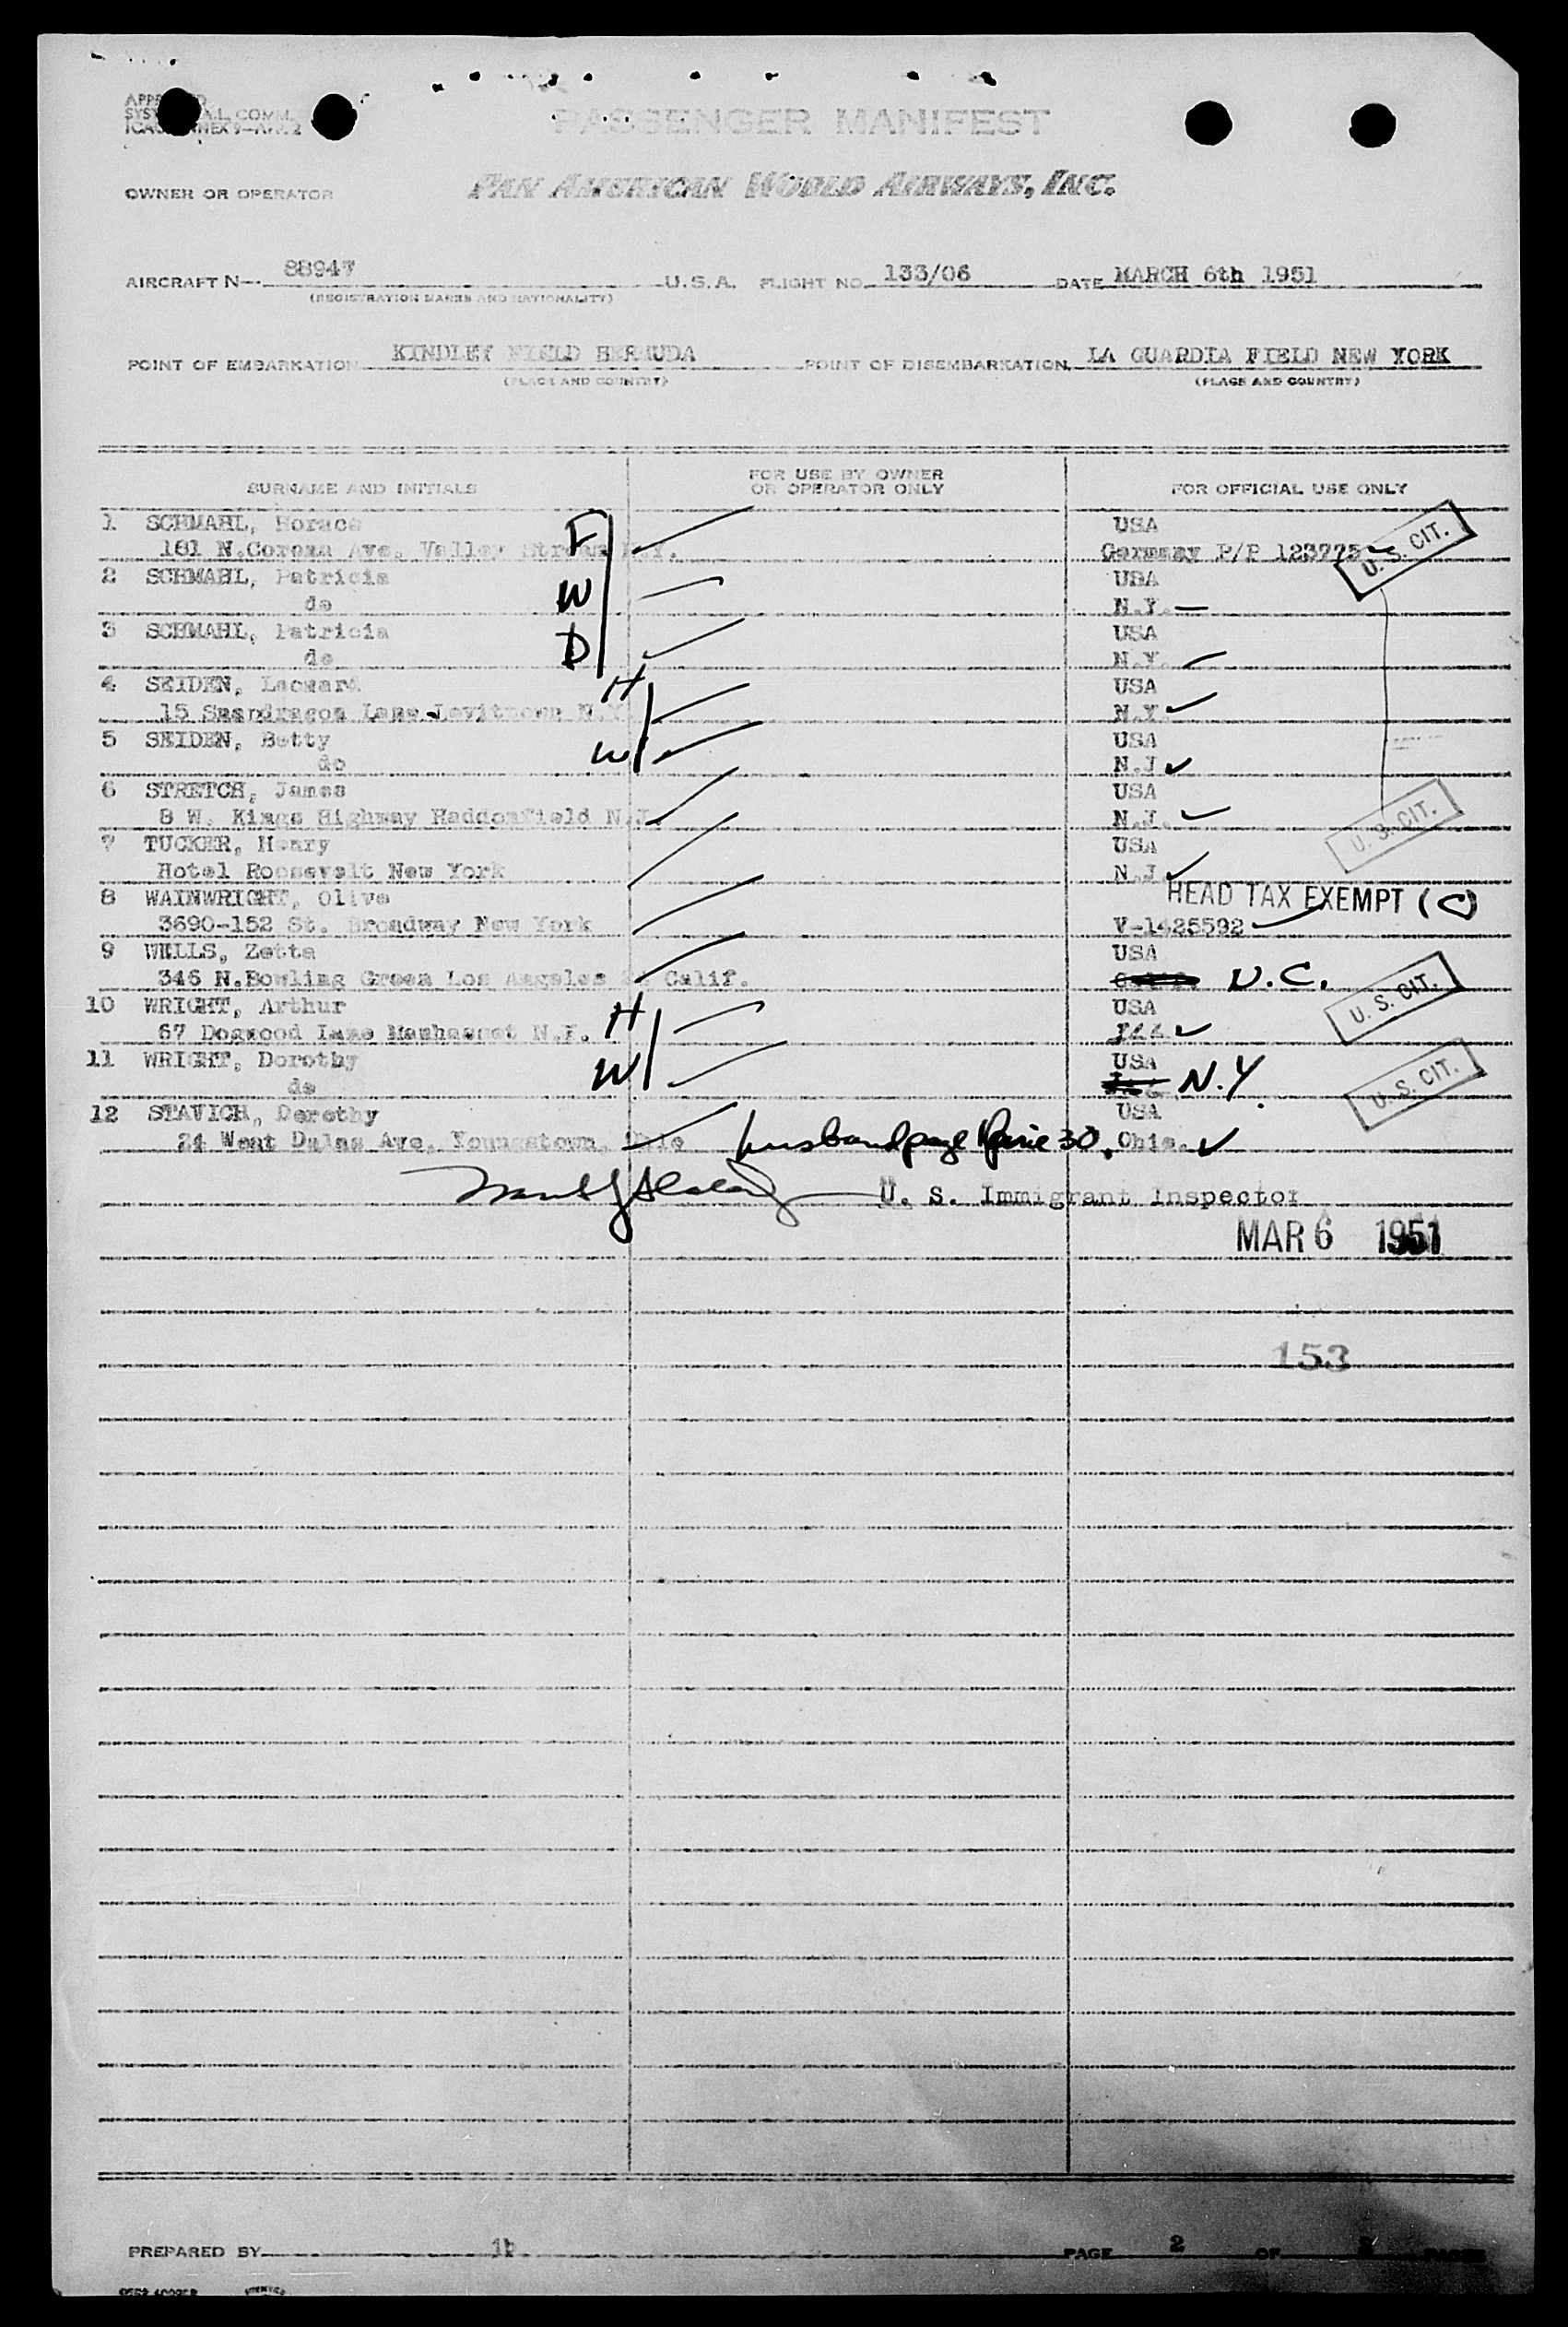 PASSENGER MANIFEST
OWNER OR OPERATOR PAN AMERICAN WORLD AIRWAYS, INC.
AIRCRAFT N- 88947 U.S.A. FLIGHT NO. 133/06 DATE MARCH 6th 1951
(REGISTRATION MARKS AND NATIONALITY)
POINT OF EMBARKATION KINDLEY FIELD BERMUDA POINT OF DISEMBARKATION LA GUARDIA FIELD NEW YORK
(PLACE AND COUNTRY) (PLACE AND COUNTRY)
SURNAME AND INITIALS FOR USE BY OWNER OR OPERATOR ONLY FOR OFFICIAL USE ONLY
1 SCHMAHL, Horace F USA
181 N. Ave. Valley Stream N.Y. Germany P/P 123775 U. S. CIT.
2 SCHMAHL, Patricia W USA
do N.Y.
3 SCHMAHL, Patricia D USA
do N.Y.
4 SEIDEN, Leonard H USA
15 Snapdragon Lane Levittown N.Y. N.Y.
5 SEIDEN, Betty W USA
do N.J.
6 STRETCH, James USA
8 W. Kings Highway Haddonfield N.J. N.J. U. S. CIT.
7 TUCKER, Henry USA
Hotel Roosevelt New York N.J.
8 WAINWRIGHT, Olive HEAD TAX EXEMPT (C)
3690-152 St. Broadway New York V-1425592
9 WELLS, Zetta USA
346 N.Bowling Green Los Angeles Calif. U.C. U. S. CIT.
10 WRIGHT, Arthur H USA
67 Dogwood Lane Manhasset N.Y.
11 WRIGHT, Dorothy W USA
do N.Y. U. S. CIT.
12 STAVICH, Dorothy USA
24 West Ave. Youngstown, Ohio husband page Ohio.
U. S. Immigrant Inspector
MAR 6 1951
153
PREPARED BY PAGE 2 OF PAGES